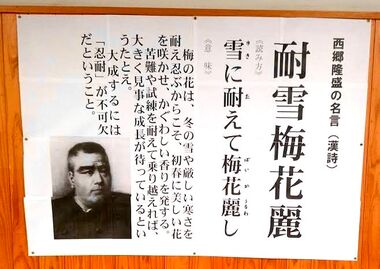 西郷隆盛の名言（漢詩）
耐雪梅花麗
《読み方》
ゆき た ばいか うるわ
雪に耐えて梅花麗し
《意味》
梅の花は、冬の雪や厳しい寒さを
耐え忍ぶからこそ、初春に美しい花
を咲かせ、かぐわしい香りを発する。
苦難や試練を耐えて乗り越えれば、
大きく見事な成長が待っているとい
うたとえ。
大成するには
「忍耐」が不可欠
だということ。